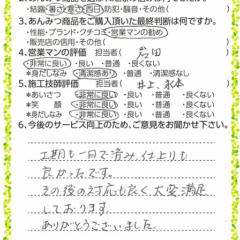 ・結露・暑さ・寒さ・西日・防犯・騒音・その他(
3.あんみつ商品をご購入頂いた最終判断は何ですか。
・性能・ブランド・クチコミ・営業マンの勧め
・販売店の信用・その他(
4.営業マンの評価 担当者( 岩田
・非常に良い ・良い ・普通 ・良くない
*身だしなみ ・清潔感あり ・普通 ・清潔感なし
5.施工技師評価 担当者( 井上、永本
*あいさつ ・非常に良い ・良い ・普通 ・良くない
*笑 顔 ・非常に良い ・良い ・普通 ・良くない
*身だしなみ ・非常に良い ・良い ・普通 ・良くない
6.今後のサービス向上のため、ご意見をお聞かせ下さい。
工期も一日で済み、仕上りも
良かったです。
その後の対応も良く、大変満足
しております。
ありがとうございました。